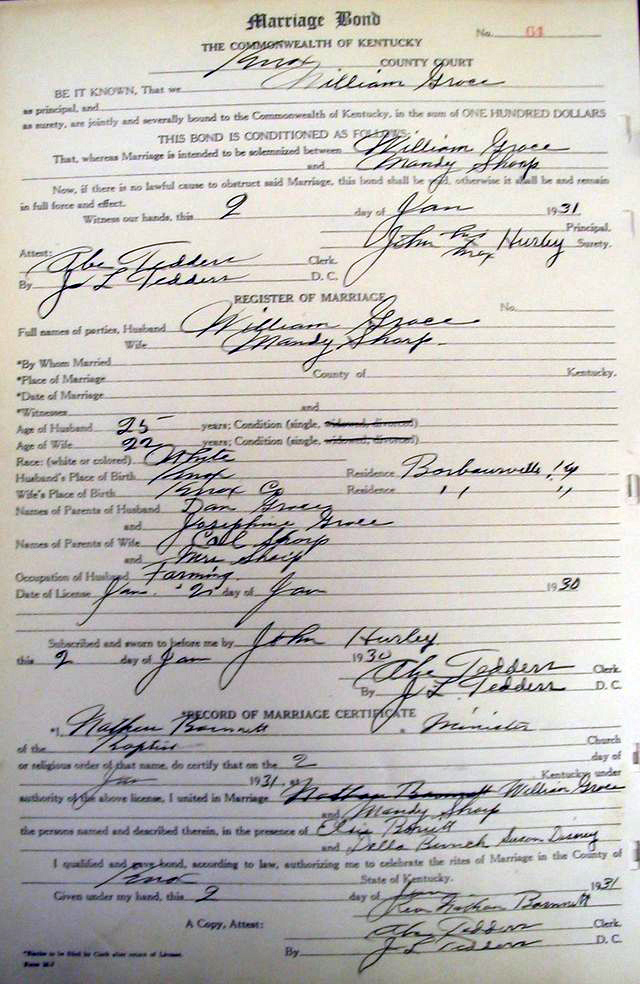 Marriage Bond
No. 64
THE COMMONWEALTH OF KENTUCKY
Knox COUNTY COURT
BE IT KNOWN, That we William Grace
as principal, and
as surety, are jointly and severally bound to the Commonwealth of Kentucky, in the sum of ONE HUNDRED DOLLARS
THIS BOND IS CONDITIONED AS FOLLOWS:
That, whereas Marriage is intended to be solemnized between William Grace
and Mandy Sharp
Now, if there is no lawful cause to obstruct said Marriage, this bond shall be void, otherwise it shall be and remain
in full force and effect.
Witness our hands, this 2 day of Jan 1931
Principal.
John his x Hurley Surety.
Attest:
Abe Tedders Clerk.
By J L Tedders D. C.
REGISTER OF MARRIAGE
No.
Full names of parties, Husband William Grace
Wife Mandy Sharp
*By Whom Married
*Place of Marriage County of Kentucky.
*Date of Marriage
*Witnesses and
Age of Husband 25 years; Condition (single, widowed, divorced)
Age of Wife 22 years; Condition (single, widowed, divorced)
Race: (white or colored) White
Husband's Place of Birth Knox Residence Barbourville, Ky
Wife's Place of Birth Knox Co Residence " "
Names of Parents of Husband Dan Grace
and Josephine Grace
Names of Parents of Wife Sharp
and Mrs Sharp
Occupation of Husband Farming.
Date of License Jan. 2 day of Jan 1930
Subscribed and sworn to before me by John Hurley
this 2 day of Jan 1930
Abe Tedders Clerk.
By J L Tedders D. C.
*RECORD OF MARRIAGE CERTIFICATE
*I, Nathan Barnett a Minister
of the Baptist Church
or religious order of that name, do certify that on the 2 day of
Jan 1931, at Kentucky under
authority of the above license, I united in Marriage Nathan Barnett William Grace
and Mandy Sharp
the persons named and described therein, in the presence of Elsie
and Della Susan
I qualified and gave bond, according to law, authorizing me to celebrate the rites of Marriage in the County of
Knox State of Kentucky.
Given under my hand, this 2 day of Jan 1931
Rev Nathan Barnett
A Copy, Attest: Abe Tedders Clerk.
By J L Tedders D. C.
*Blanks to be filled by Clerk after return of License.